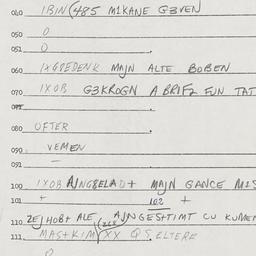 040 IBIN (485 MIKANE G3VEN
050 0
051 0
060 IXGEDENK MAJN ALTE BOBEN
070 IXOB G3KROGN A BRIF2 FUN TAT
071
080 OFTER
090 VEMEN
091 —
100 IXOB AJNGELAD+ MAJN GANCE MIS
101 + 102 +
110 ZEJ HOBT ALE AJNGESTIMT CU KUMEN
111 MASKIM XX Q S ELTERE